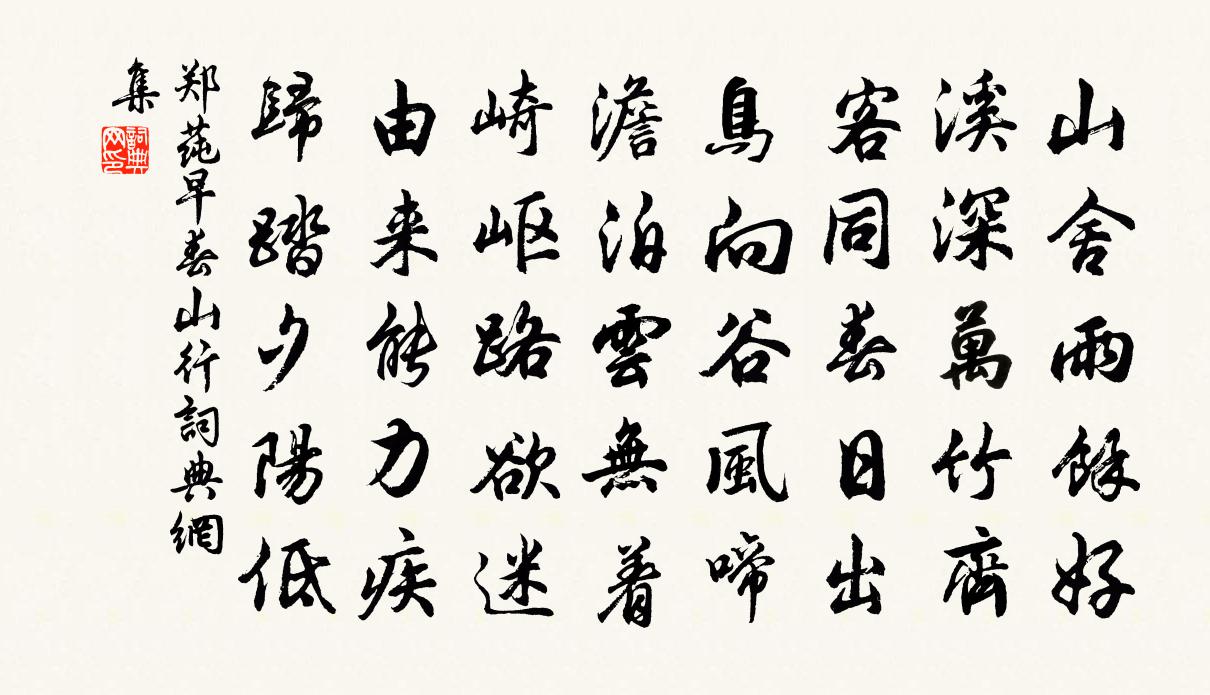 山舍雨餘好
溪深萬竹齊
客同春日出
鳥向谷風啼
澹泊雲無着
崎岖路欲迷
由来能力疾
歸踏夕陽低
郑莼早春山行詞典網
集
詞典
网印